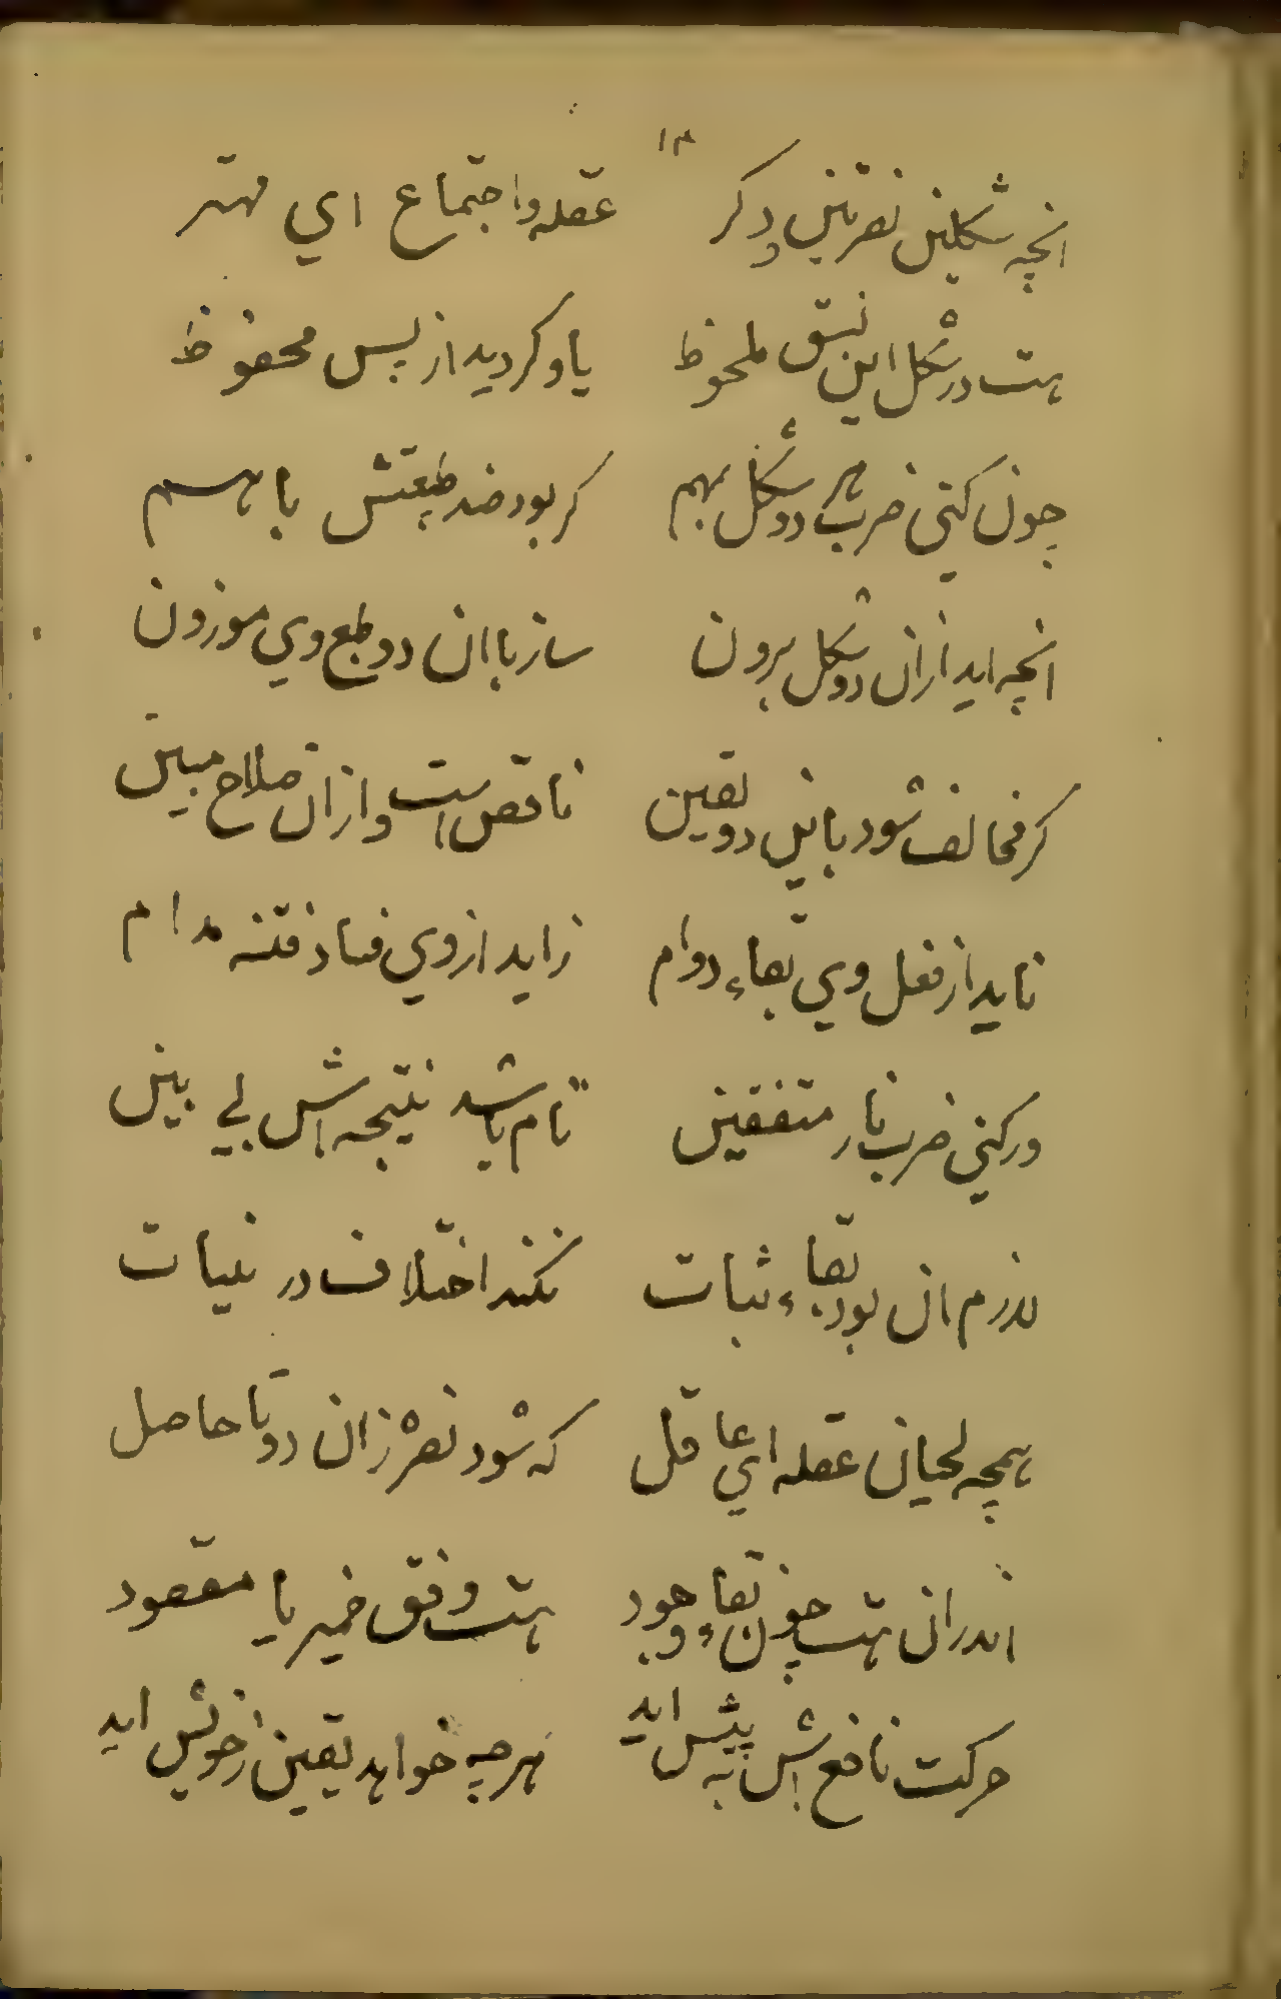 ۱۳
انچه شکلین نصرتین دکر عقله و اجتماع ای مهتر
هست در شکل این نسق ملحوظ یاد کردید از پس محفوظ
چون کنی ضرب هر دو شکل بهم کر بود ضد طبعتش با هم
انچه اید از ان دو شکل برون ساز با ان دو طبع وی موزون
کر مخالف شود باین دو یقین ناقص است و از ان صلاح مبین
ناید از فعل وی بقاء دوام زاید از وی فساد فتنه مدام
ور کنی ضرب نار متفقین تام باشد نتیجه اش بی بین
لازم ان بود بقاء ثبات نکند اختلاف در نیات
همچه لحیان عقله ای عاقل که شود نصره زان دو تا حاصل
اندرانی هست چون بقاء وجود هست وفق ضمیر یا مقصود
حرکت نافع اش به پیش اید هرچه خواهد یقین ز خویش اید